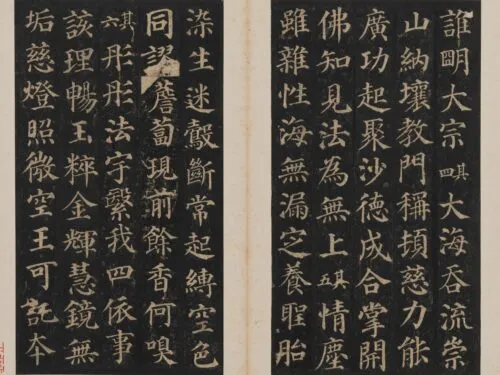 誰明大宗其四大海吞流崇
山納壤教門稱頓慈力能
廣功起聚沙德成合掌開
佛知見法為無上其五情塵
雖雜性海無漏定養聖胎
染生迷鷇斷常起縛空色
同謬薝蔔現前餘香何嗅
其六彤彤法宇繄我四依事
該理暢玉粹金輝慧鏡無
垢慈燈照微空王可託本